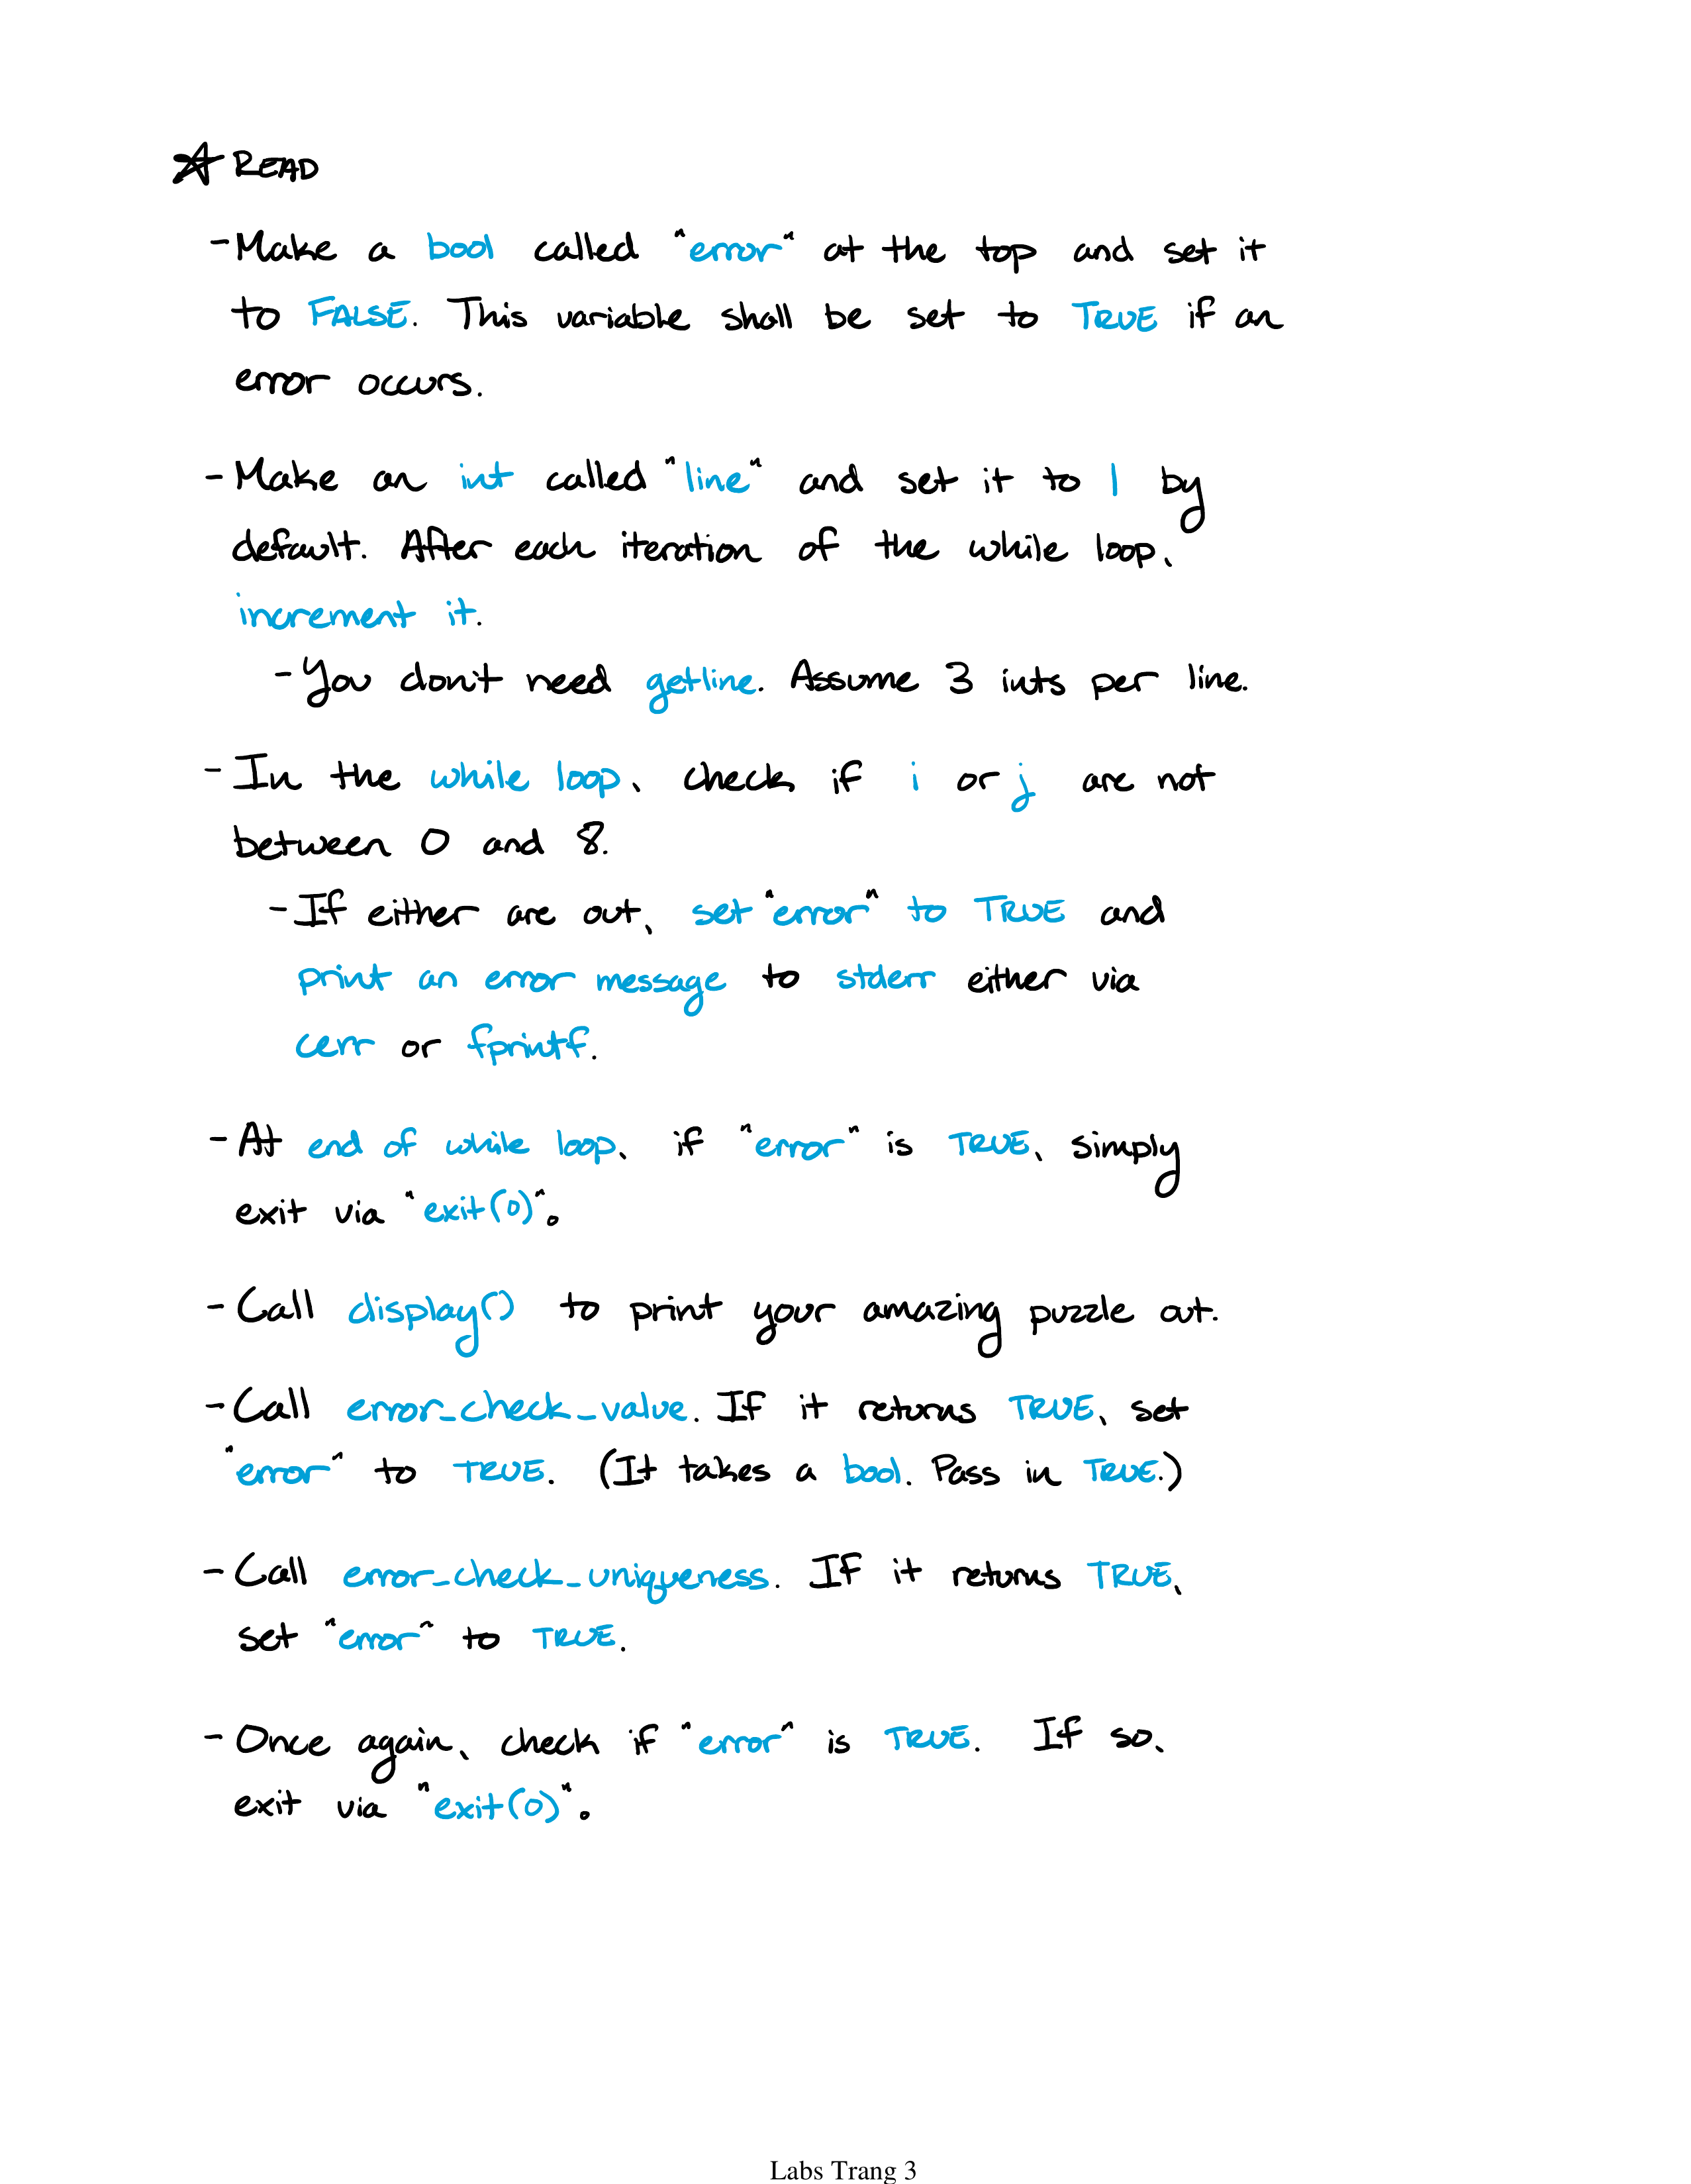 ☆ READ
- Make a bool called "error" at the top and set it
to FALSE. This variable shall be set to TRUE if an
error occurs.
- Make an int called "line" and set it to 1 by
default. After each iteration of the while loop,
increment it.
- You don't need getline. Assume 3 ints per line.
- In the while loop, check if i or j are not
between 0 and 8.
- If either are out, set "error" to TRUE and
print an error message to stderr either via
cerr or fprintf.
- At end of while loop, if "error" is TRUE, simply
exit via "exit(0)".
- Call display() to print your amazing puzzle out.
- Call error_check_value. If it returns TRUE, set
"error" to TRUE. (It takes a bool. Pass in TRUE.)
- Call error_check_uniqueness. If it returns TRUE,
set "error" to TRUE.
- Once again, check if "error" is TRUE. If so,
exit via "exit(0)".
Labs Trang 3